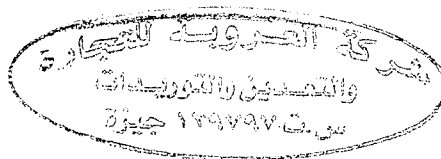 شركة العروبة للتجارة
والتعدين والتوريدات
س.ت ١٣٩٧٩٧ جيزة